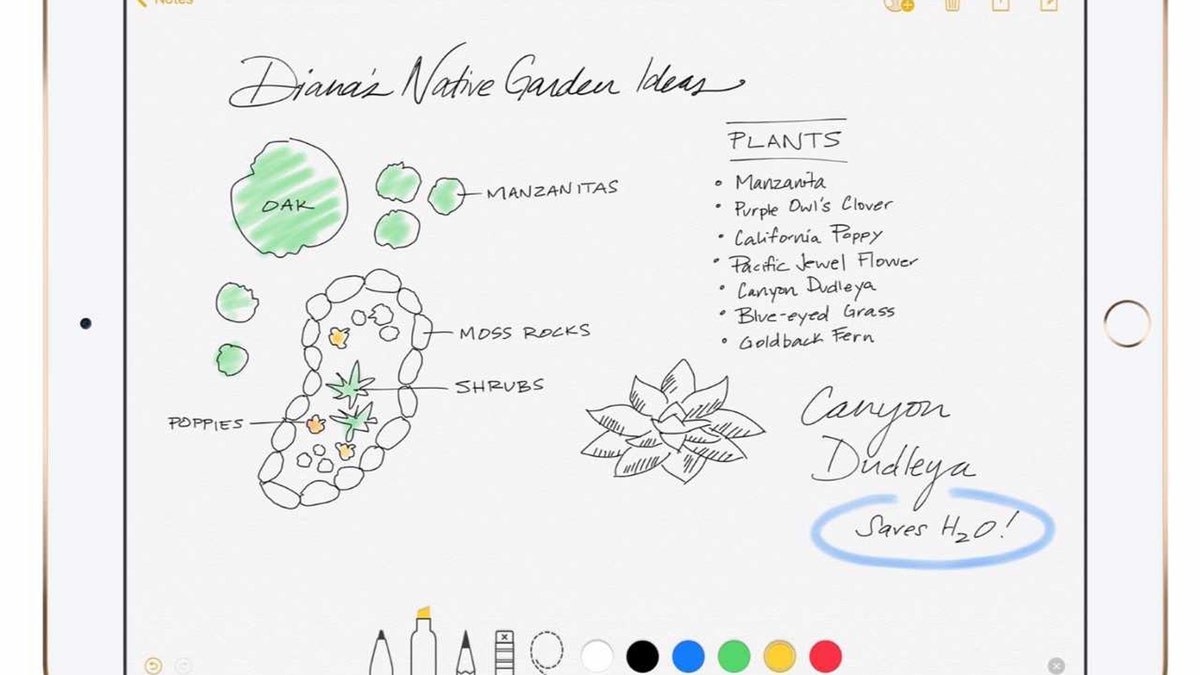 Notes
Diana's Native Garden Ideas
PLANTS
• Manzanita
• Purple Owl's Clover
• California Poppy
• Pacific Jewel Flower
• Canyon Dudleya
• Blue-eyed Grass
• Goldback Fern
OAK
MANZANITAS
MOSS ROCKS
SHRUBS
POPPIES
Canyon
Dudleya
Saves H₂O!